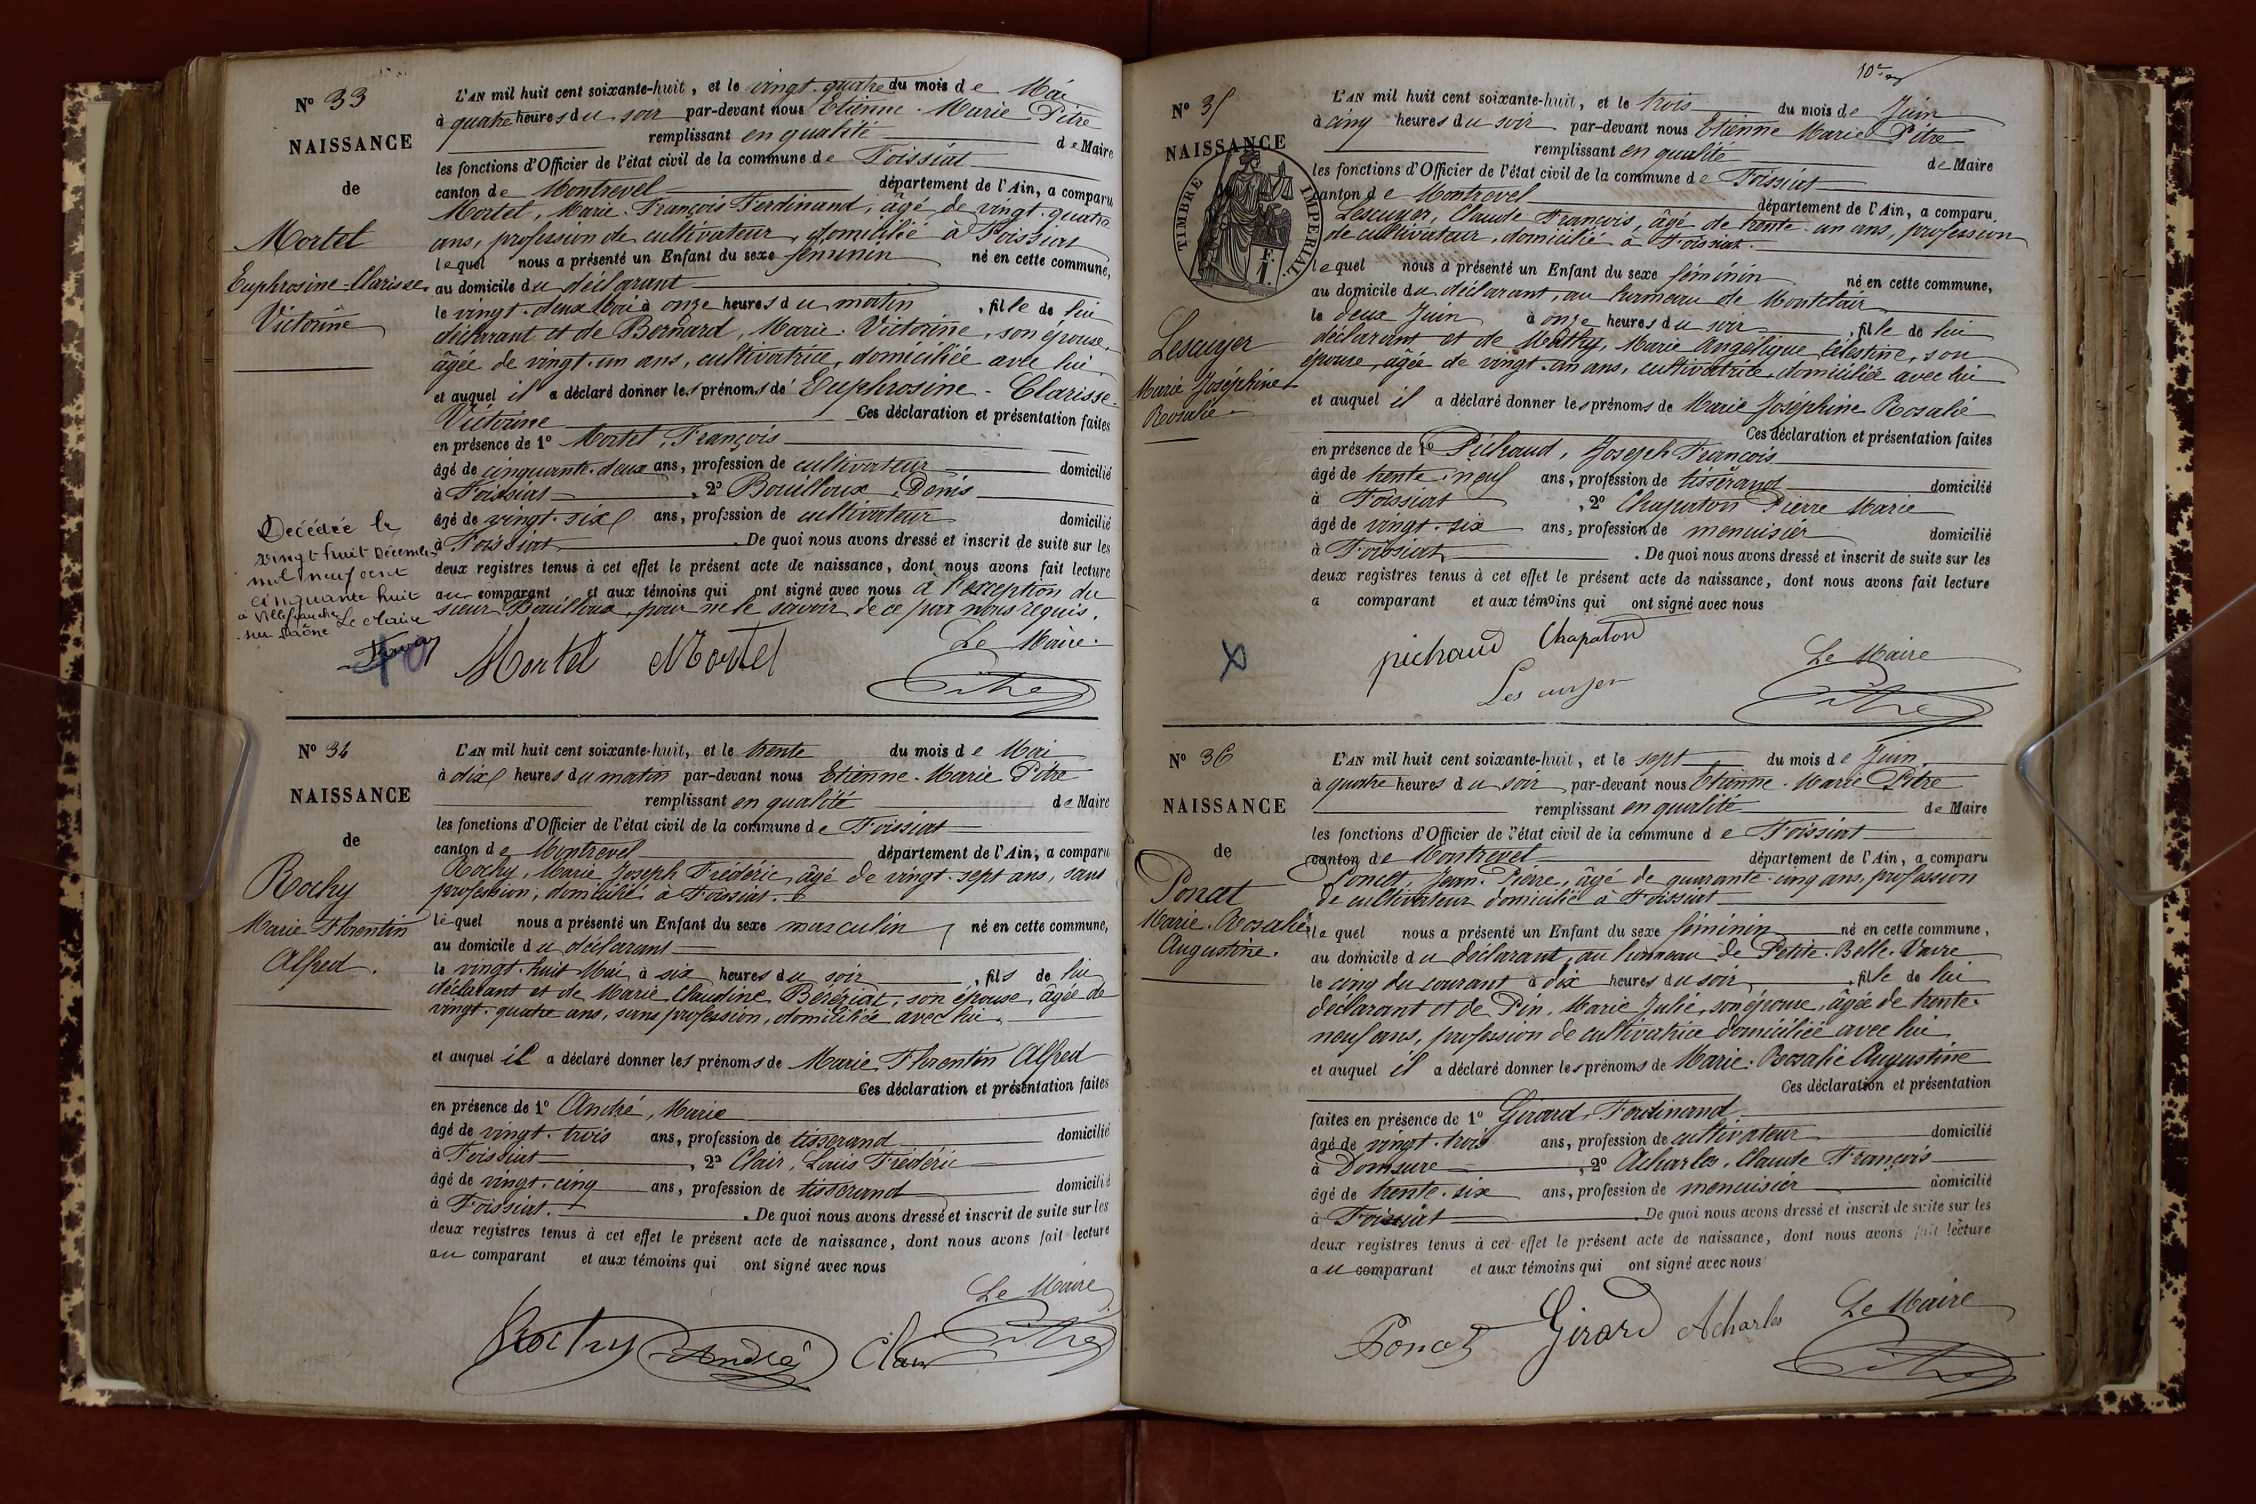 N° 33
NAISSANCE
de
Mortel
Euphrosine-Clarisse
Victorine
Decédée le
vingt huit Décembre
mil neuf cent
cinquante huit
à Villefranche
sur Saône Le Maire
L'AN mil huit cent soixante-huit, et le vingt-quatre du mois de Mai
à quatre heures du soir par-devant nous Etienne-Marie Pitre
remplissant en qualité de Maire
les fonctions d'Officier de l'état civil de la commune de Foissiat
canton de Montrevel département de l'Ain, a comparu
Mortel, Marie-François Ferdinand, âgé de vingt-quatre
ans, profession de cultivateur, domicilié à Foissiat
lequel nous a présenté un Enfant du sexe féminin né en cette commune,
au domicile du déclarant
le vingt-deux Mai à onze heures du matin, fille de lui
déclarant et de Bernard, Marie-Victorine, son épouse,
âgée de vingt-un ans, cultivatrice, domiciliée avec lui
et auquel il a déclaré donner les prénoms de Euphrosine-Clarisse-
Victorine Ces déclaration et présentation faites
en présence de 1° Mortel, François
âgé de cinquante-deux ans, profession de cultivateur domicilié
à Foissiat, 2° Bouilloux, Denis
âgé de vingt-six ans, profession de cultivateur domicilié
à Foissiat. De quoi nous avons dressé et inscrit de suite sur les
deux registres tenus à cet effet le présent acte de naissance, dont nous avons fait lecture
au comparant et aux témoins qui ont signé avec nous à l'exception du
sieur Bouilloux, pour ne le savoir de ce par nous requis.
Le Maire.
Mortel Mortel Pitre
N° 34
NAISSANCE
de
Rochy
Marie Florentin
Alfred.
L'AN mil huit cent soixante-huit, et le trente du mois de Mai
à dix heures du matin par-devant nous Etienne-Marie Pitre
remplissant en qualité de Maire
les fonctions d'Officier de l'état civil de la commune de Foissiat
canton de Montrevel département de l'Ain, a comparu
Rochy, Marie Joseph Frédéric, âgé de vingt-sept ans, sans
profession, domicilié à Foissiat.
lequel nous a présenté un Enfant du sexe masculin, né en cette commune,
au domicile du déclarant
le vingt-huit Mai à six heures du soir, fils de lui
déclarant et de Marie Claudine Béréziat, son épouse, âgée de
vingt-quatre ans, sans profession, domiciliée avec lui.
et auquel il a déclaré donner les prénoms de Marie Florentin Alfred
Ces déclaration et présentation faites
en présence de 1° André, Marie
âgé de vingt-trois ans, profession de tisserand domicilié
à Foissiat, 2° Clair, Louis Frédéric
âgé de vingt-cinq ans, profession de tisserand domicilié
à Foissiat. De quoi nous avons dressé et inscrit de suite sur les
deux registres tenus à cet effet le présent acte de naissance, dont nous avons fait lecture
au comparant et aux témoins qui ont signé avec nous
Le Maire
Rochy André Clair Pitre
N° 35
NAISSANCE
TIMBRE IMPERIAL.
1 F.
Lescuyer
Marie Joséphine
Rosalie
L'AN mil huit cent soixante-huit, et le trois du mois de Juin
à cinq heures du soir par-devant nous Etienne Marie Pitre
remplissant en qualité de Maire
les fonctions d'Officier de l'état civil de la commune de Foissiat
canton de Montrevel département de l'Ain, a comparu
Lescuyer, Claude François, âgé de trente-un ans, profession
de cultivateur, domicilié à Foissiat.
lequel nous a présenté un Enfant du sexe féminin né en cette commune,
au domicile du déclarant, au hameau de Montclair
le deux Juin à onze heures du soir, fille de lui
déclarant et de Marie Angélique Célestine, son
épouse, âgée de vingt-un ans, cultivatrice domiciliée avec lui
et auquel il a déclaré donner les prénoms de Marie Joséphine Rosalie
Ces déclaration et présentation faites
en présence de 1° Pichaud, Joseph François
âgé de trente-neuf ans, profession de tisserand domicilié
à Foissiat, 2° Chapaton Pierre Marie
âgé de vingt-six ans, profession de menuisier domicilié
à Foissiat. De quoi nous avons dressé et inscrit de suite sur les
deux registres tenus à cet effet le présent acte de naissance, dont nous avons fait lecture
a comparant et aux témoins qui ont signé avec nous
pichaud Chapaton Le Maire
Lescuyer Pitre
N° 36
NAISSANCE
de
Poncet
Marie-Rosalie
Augustine.
L'AN mil huit cent soixante-huit, et le sept du mois de Juin
à quatre heures du soir par-devant nous Etienne-Marie Pitre
remplissant en qualité de Maire
les fonctions d'Officier de l'état civil de la commune de Foissiat
canton de Montrevel département de l'Ain, a comparu
Poncet, Jean-Pierre, âgé de quarante-cinq ans, profession
de cultivateur domicilié à Foissiat
lequel nous a présenté un Enfant du sexe féminin né en cette commune,
au domicile du déclarant, au hameau de Petite-Belle-Vavre
le cinq du courant à dix heures du soir, fille de lui
déclarant et de Pin, Marie Julie, son épouse, âgée de trente-
neuf ans, profession de cultivatrice domiciliée avec lui
et auquel il a déclaré donner les prénoms de Marie-Rosalie Augustine
Ces déclaration et présentation
faites en présence de 1° Girard, Ferdinand
âgé de vingt-trois ans, profession de cultivateur domicilié
à Domsure, 2° Acharles, Claude François
âgé de trente-six ans, profession de menuisier domicilié
à Foissiat. De quoi nous avons dressé et inscrit de suite sur les
deux registres tenus à cet effet le présent acte de naissance, dont nous avons fait lecture
au comparant et aux témoins qui ont signé avec nous
Poncet Girard Acharles Le Maire
Pitre